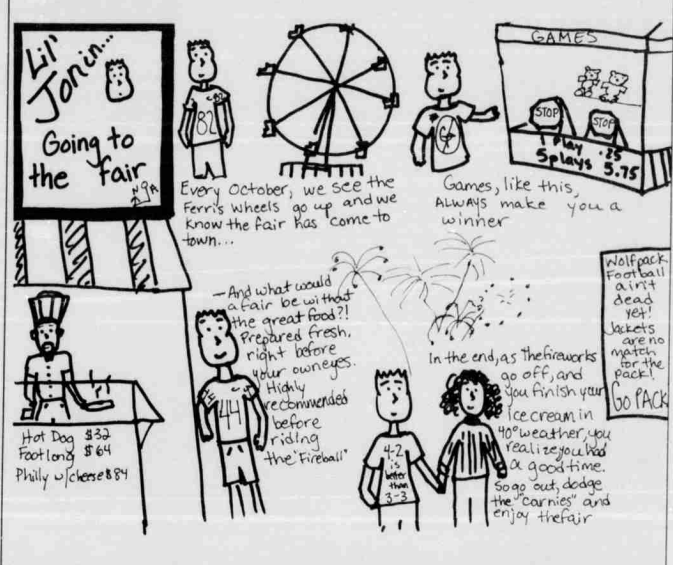 Lil'
Jon in...
Going to
the fair
82
Every October, we see the
Ferris wheels go up and we
know the fair has come to
town...
GAMES
STOP
STOP
1 Play .25
5 plays 5.75
Games, like this,
ALWAYS make you a
winner
Hot Dog $32
Footlong $64
Philly w/cheese $84
—And what would
a fair be without
the great food?!
Prepared fresh,
right before
your own eyes.
Highly
recommended
before
riding
the "Fireball"
44
44
4-2
is
better
than
3-3
In the end, as the fireworks
go off, and
you finish your
ice cream in
40° weather, you
realize you had
a good time.
So go out, dodge
the "carnies" and
enjoy the fair
Wolfpack
Football
ain't
dead
yet!
Jackets
are no
match
for the
pack!
GO PACK